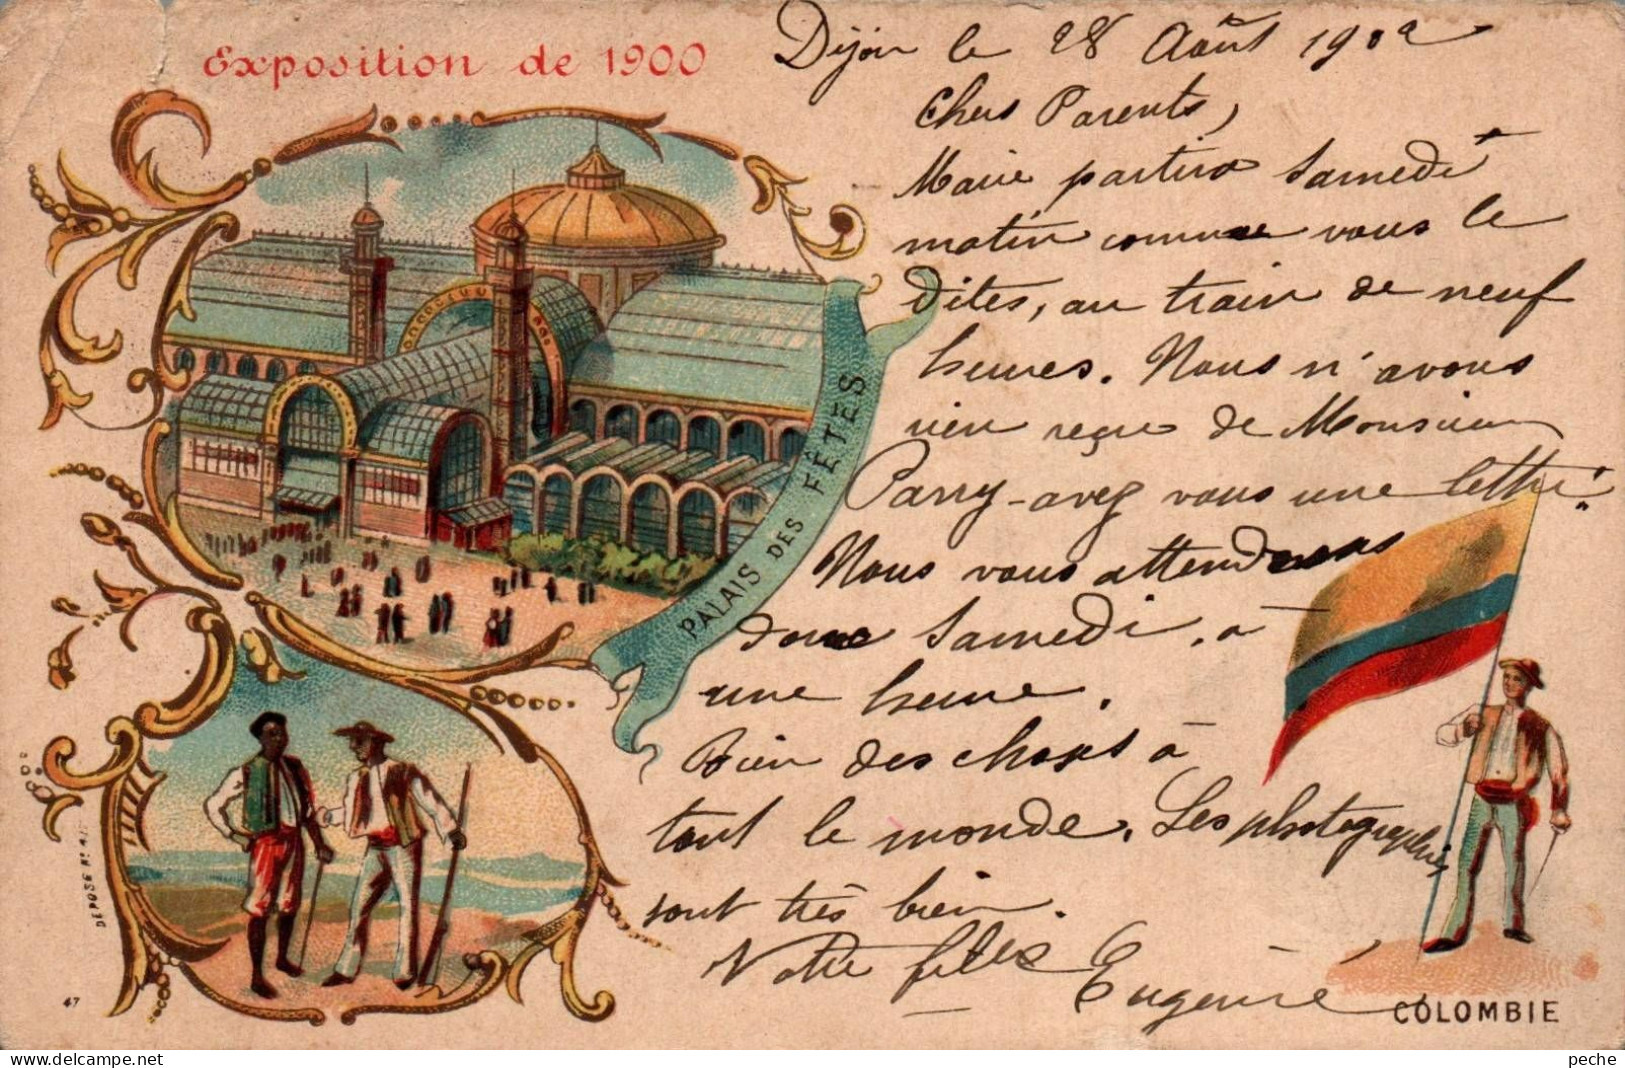 Exposition de 1900
Dijon le 28 Août 1902
Chers Parents,
Marie partira Samedi
matin comme vous le
dites, au train de neuf
heures. Nous n'avons
rien reçu de Monsieur
Parry - avez vous une lettre.
Nous vous attendons
donc Samedi, à
une heure.
Bien des choses à
tout le monde. Les photographies
sont très bien.
Votre fille Eugénie
PALAIS DES FÊTES
DEPOSE No 41
47
COLOMBIE
Website: delcampe.net
peche